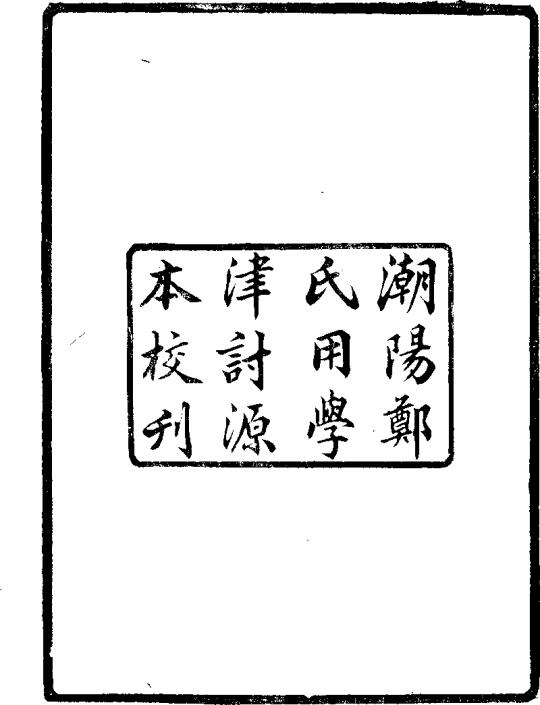 潮陽鄭
氏用學
津討源
本校刊